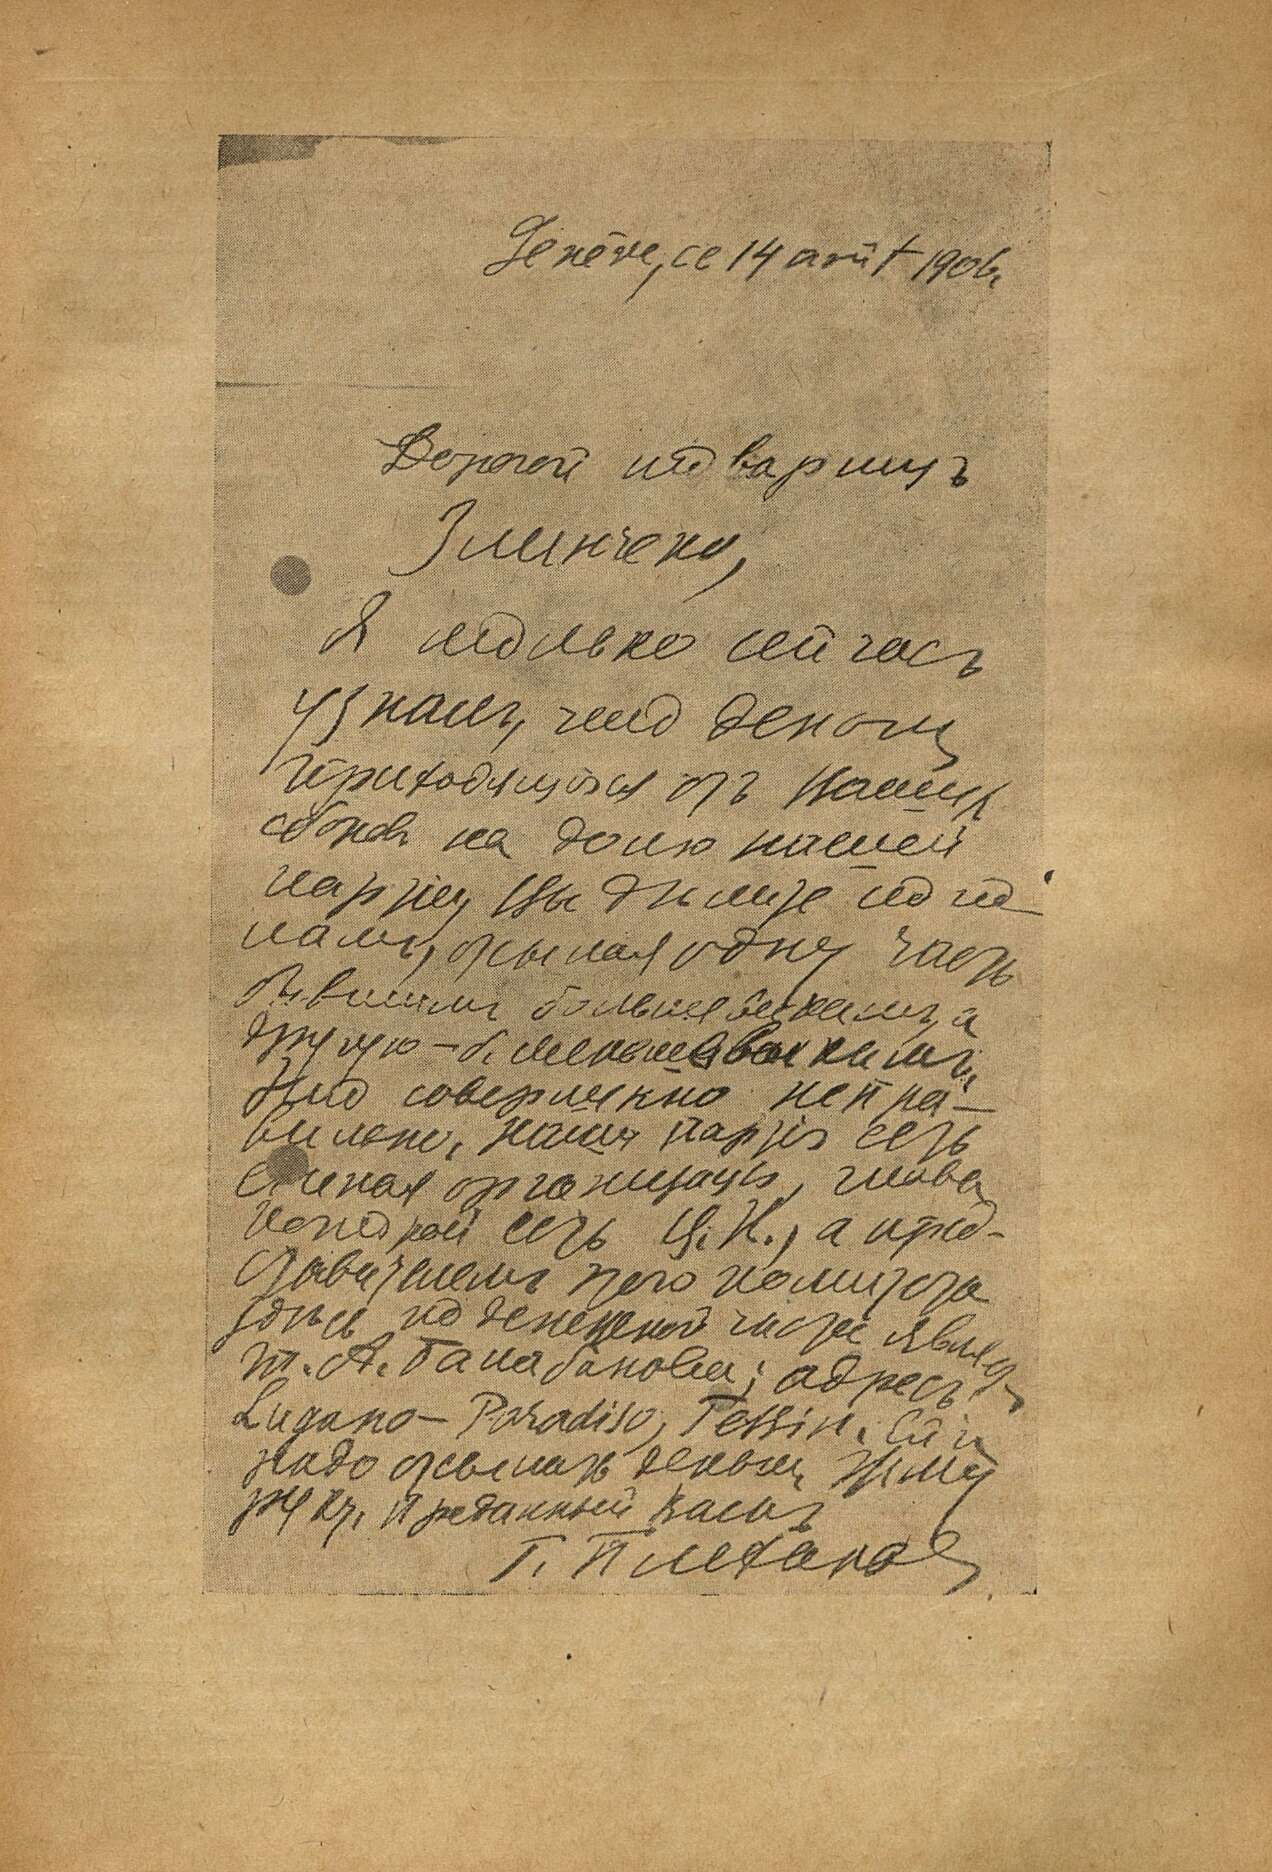 Genève, ce 14 août 1906.
Дорогой товарищъ
Злинченко,
Я только сейчасъ
узналъ, что деньги
приходящіяся отъ нашихъ
сборовъ на долю нашей
партіи, Вы дѣлите по по-
ламъ, отсылая одну часть
бывшимъ большевикамъ, а
другую – б. меньшевикамъ.
Это совершенно непра-
вильно. Наша партія есть
единая организація, глава
которой есть Ц. К., а пред-
ставителемъ этого комитета
здѣсь по денежной части явл.
т. А. Балабанова; адресъ
Lugano – Paradiso, Tessin. Ей и
надо отсылать деньги. Жму
руку. Преданный Вамъ
Г. Плеханов